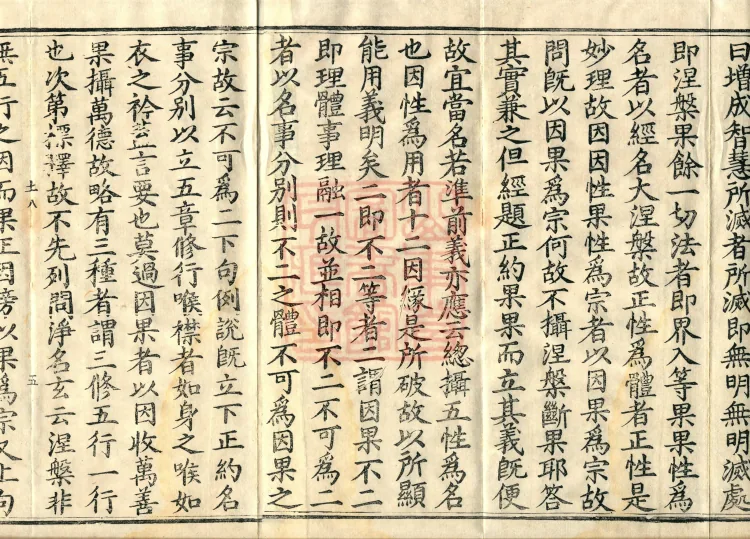 日增成智慧所滅者所滅即無明無明滅處
即涅槃果餘一切法者即界入等果果性為
名者以經名大涅槃故正性為體者正性是
妙理故因因性果性為宗者以因果為宗故
問旣以因果為宗何故不攝涅槃斷果耶答
其實兼之但經題正約果果而立其義旣便
故宜當名若準前義亦應云總攝五性為名
也因性為用者十二因緣是所破故以所顯
能用義明矣二即不二等者二謂因果不二
即理體事理融一故並相即不二不可為二
者以名事分別則不二之體不可為因果之
宗故云不可為二下句例說旣立下正約名
事分別以立五章修行喉襟者如身之喉如
衣之衿葢言要也莫過因果者以因收萬善
果攝萬德故略有三種者謂三修五行一行
也次第揀擇故不先列問淨名玄云涅槃非
土八 五
無五行之因而果正因傍以果為宗又上句